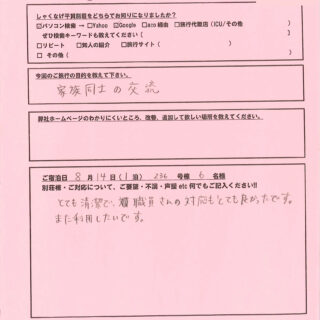 しゃくなげ平別荘をどちらでお知りになりましたか？
☑パソコン検索 → □Yahoo ☑Google □aco 経由 □旅行代理店（ICU/その他 ）
ぜひ検索キーワードも教えてください（ ）
□リピート □知人の紹介 □旅行サイト（ ）
□その他（ ）
今回のご旅行の目的を教えて下さい。
家族同士の交流
弊社ホームページのわかりにくいところ、改善、追加して欲しい場所を教えてください。
ご宿泊日 8 月 14 日（1 泊） 236 号棟 6 名様
別荘様・ご対応について、ご要望・不満・声援 etc 何でもご記入ください!!
とても清潔で、職員さんの対応もとても良かったです。
また利用したいです。